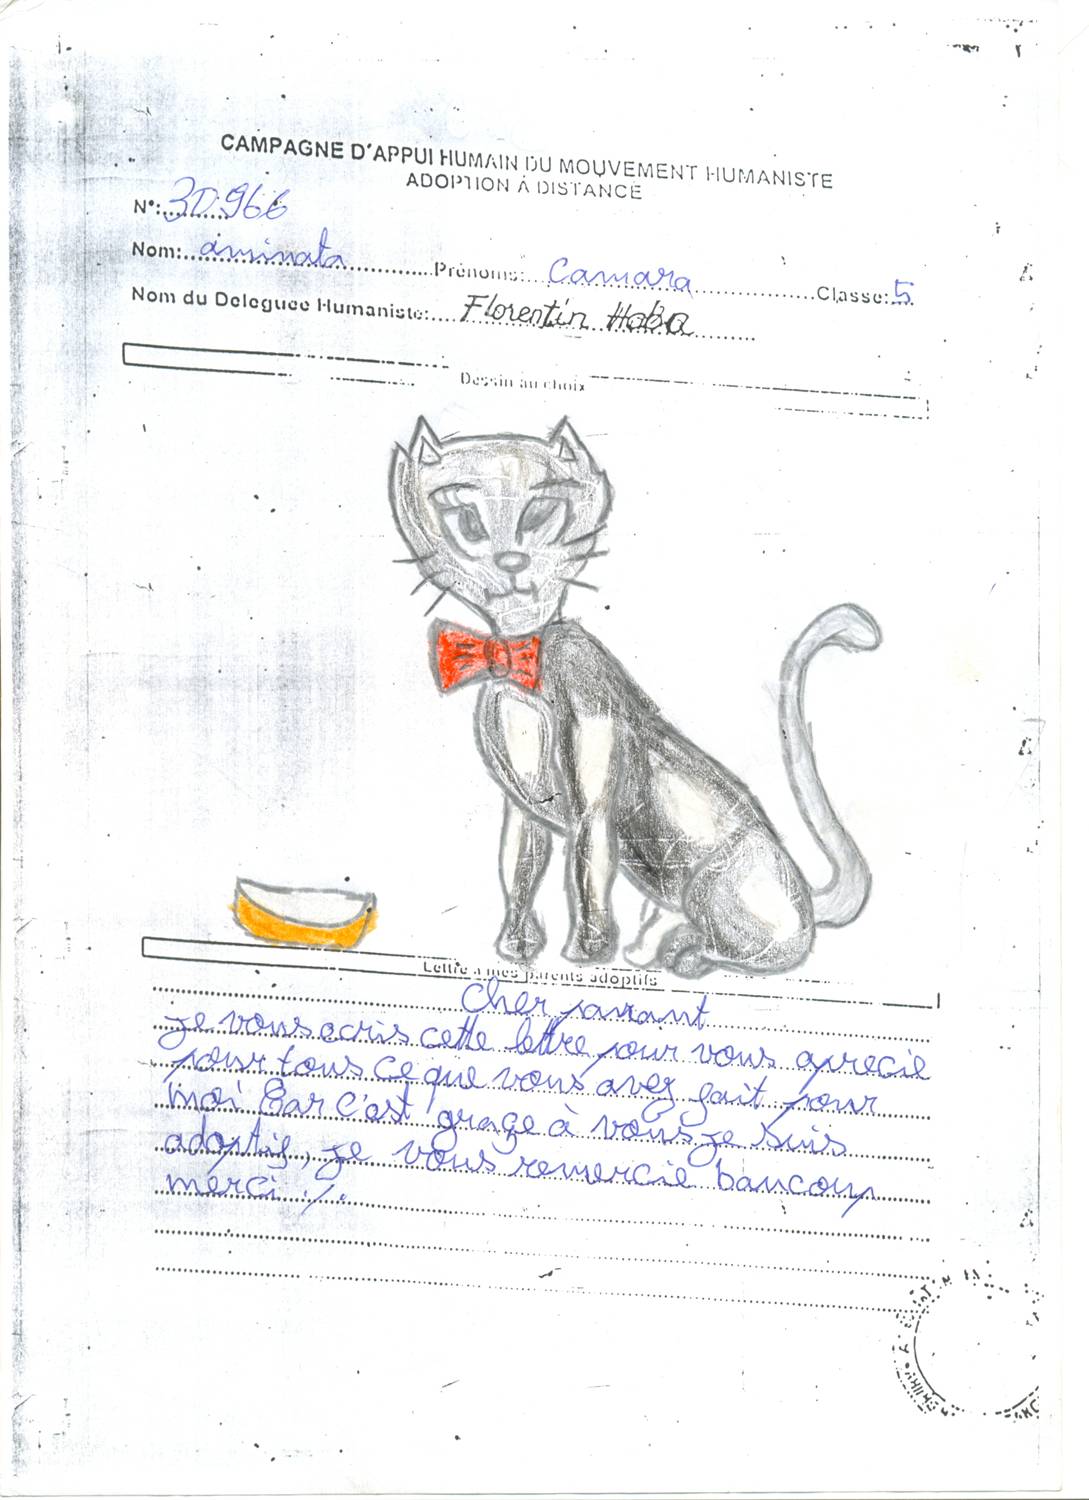 CAMPAGNE D'APPUI HUMAIN DU MOUVEMENT HUMANISTE
ADOPTION À DISTANCE
N°: 30966
Nom: aminata Prénoms: Camara Classe: 5
Nom du Deleguee Humaniste: Florentin Haba
Dessin au choix
Lettre a mes parents adoptifs
Cher parant
je vous ecris cette lettre pour vous aprecie
pour tous ce que vous avez fait pour
moi Car c'est graçe à vous je suis
adoptif, je vous remercie baucoup
merci ./.